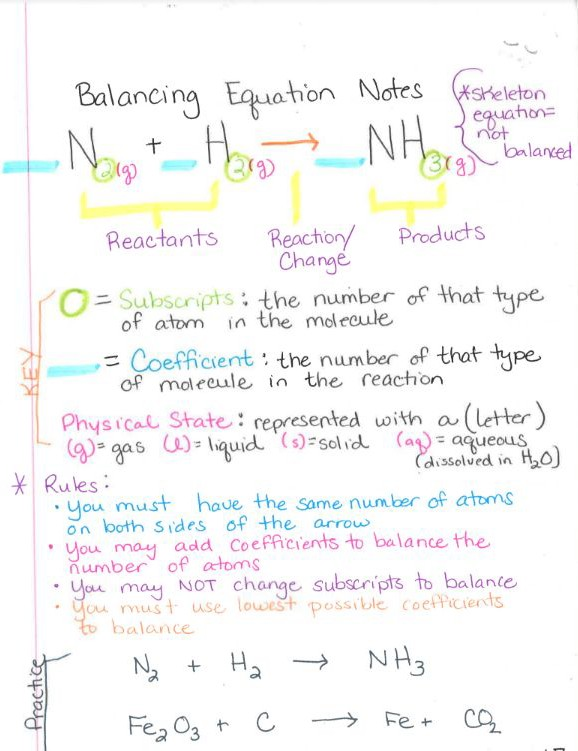 Balancing Equation Notes
*skeleton
equation=
not
balanced
N₂(g) + H₂(g) → NH₃(g)
Reactants Reaction/ Products
Change
KEY
O = Subscripts: the number of that type
of atom in the molecule
= Coefficient: the number of that type
of molecule in the reaction
Physical State: represented with a (letter)
(g)=gas (l)=liquid (s)=solid (aq)=aqueous
(dissolved in H₂O)
* Rules:
• You must have the same number of atoms
on both sides of the arrow
• You may add coefficients to balance the
number of atoms
• You may NOT change subscripts to balance
• You must use lowest possible coefficients
to balance
Practice
N₂ + H₂ → NH₃
Fe₂O₃ + C → Fe + CO₂